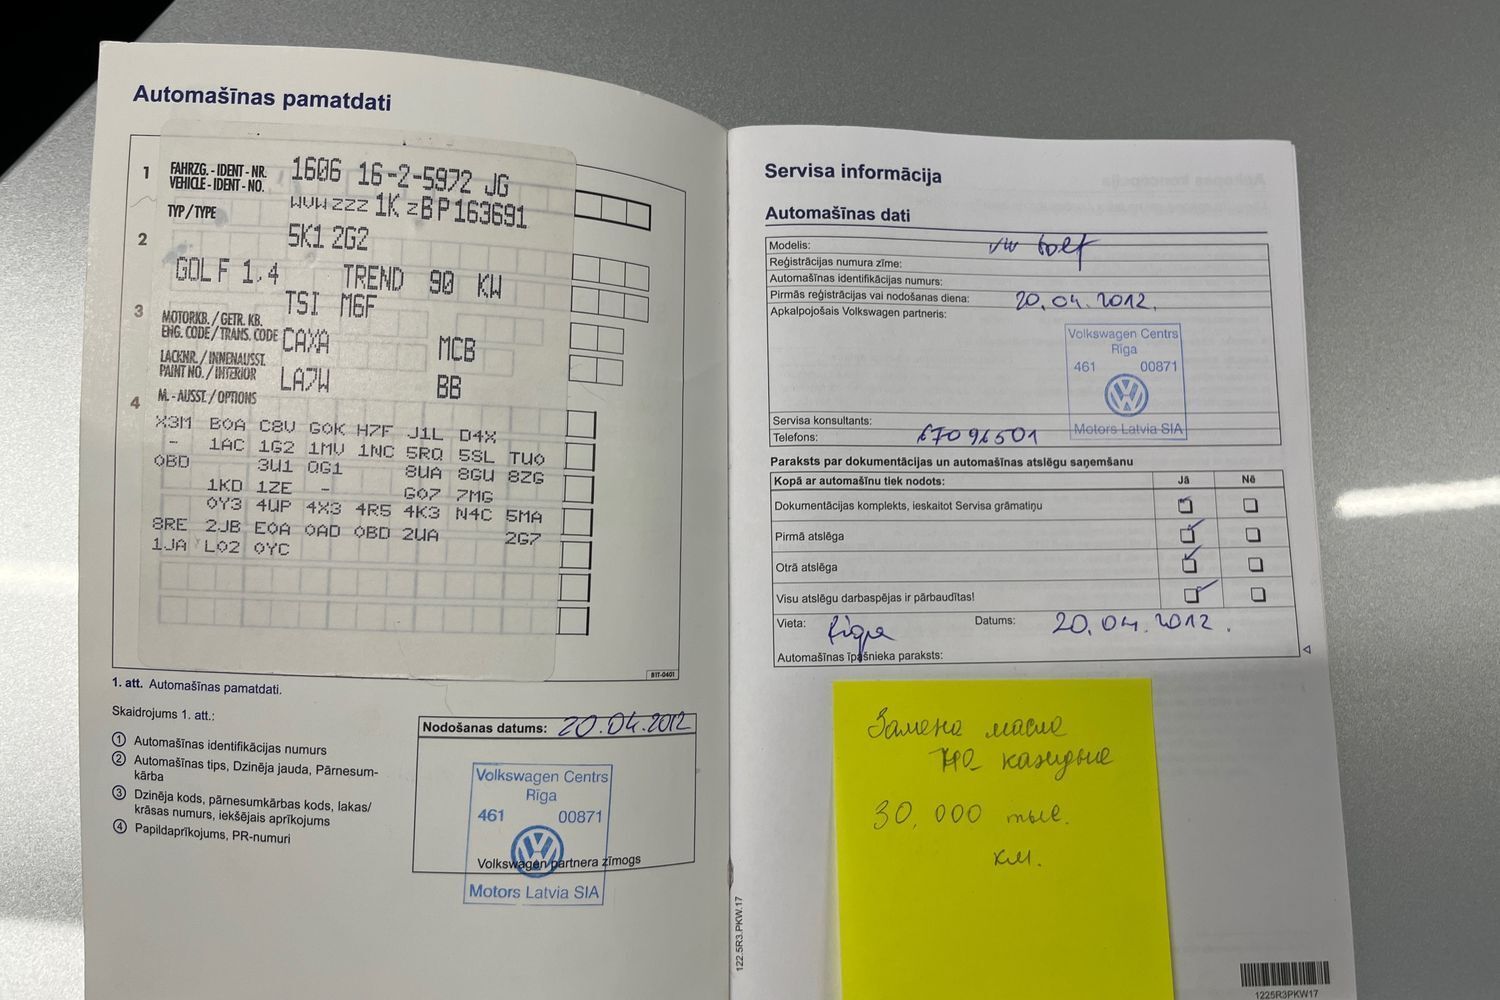 Automašīnas pamatdati
1
FAHRZG.-IDENT-NR.
VEHICLE-IDENT-NO.
1606 16-2-5972 JG
WVWZZZ1KZBP163691
TYP/TYPE
5K1 2G2
2
GOLF 1.4 TREND 90 KW
TSI M6F
3
MOTORKB./GETR.KB.
ENG. CODE/TRANS. CODE
CAXA MCB
LACKNR./INNENAUSST.
PAINT NO./INTERIOR
LA7W BB
4
M.-AUSST./OPTIONS
X3M B0A C8V G0K H7F J1L D4X
- 1AC 1G2 1MV 1NC 5RQ 5SL TU0
0BD 3U1 QG1 8UA 8GU 8ZG
1KD 1ZE - G07 7MG
0Y3 4UP 4X3 4R5 4K3 N4C 5MA
8RE 2JB E0A 0AD 0BD 2UA 2G7
1JA L02 0YC
B1T-0401
1. att. Automašīnas pamatdati.
Skaidrojums 1. att.:
① Automašīnas identifikācijas numurs
② Automašīnas tips, Dzinēja jauda, Pārnesum-
kārba
③ Dzinēja kods, pārnesumkārbas kods, lakas/
krāsas numurs, iekšējais aprīkojums
④ Papildaprīkojums, PR-numuri
Nodošanas datums: 20.04.2012
Volkswagen Centrs
Rīga
461 00871
Volkswagen partnera zīmogs
Motors Latvia SIA
Servisa informācija
Automašīnas dati
Modelis: VW Golf
Reģistrācijas numura zīme:
Automašīnas identifikācijas numurs:
Pirmās reģistrācijas vai nodošanas diena: 20.04.2012.
Apkalpojošais Volkswagen partneris:
Volkswagen Centrs
Rīga
461 00871
Motors Latvia SIA
Servisa konsultants:
Telefons: 67096501
Paraksts par dokumentācijas un automašīnas atslēgu saņemšanu
Kopā ar automašīnu tiek nodots: Jā Nē
Dokumentācijas komplekts, ieskaitot Servisa grāmatiņu
Pirmā atslēga
Otrā atslēga
Visu atslēgu darbaspējas ir pārbaudītas!
Vieta: Rīga Datums: 20.04.2012.
Automašīnas īpašnieka paraksts:
Замена масла
на каждые
30,000 тыс.
км.
122.5R3.PKW.17
1225R3PKW17